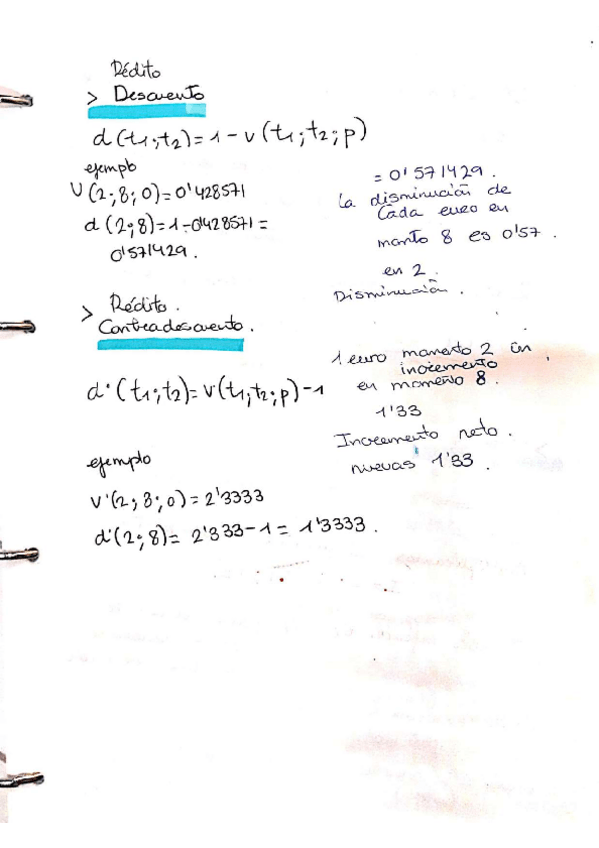 Rédito
> Descuento
d(t1;t2)=1-v(t1;t2;p)
ejemplo
V(2;8;0)=0'428571
d(2;8)=1-0'428571=
0'571429.
=0'571429.
La disminución de
Cada euro en
manto 8 es 0'57.
en 2.
Disminución.
> Rédito.
Contradescuento.
d'(t1;t2)=V(t1;t2;p)-1
1 euro momento 2 un
incremento
en momento 8.
1'33
Incremento neto.
nuevas 1'33.
ejemplo
V'(2;8;0)=2'3333
d'(2;8)=2'333-1=1'3333.